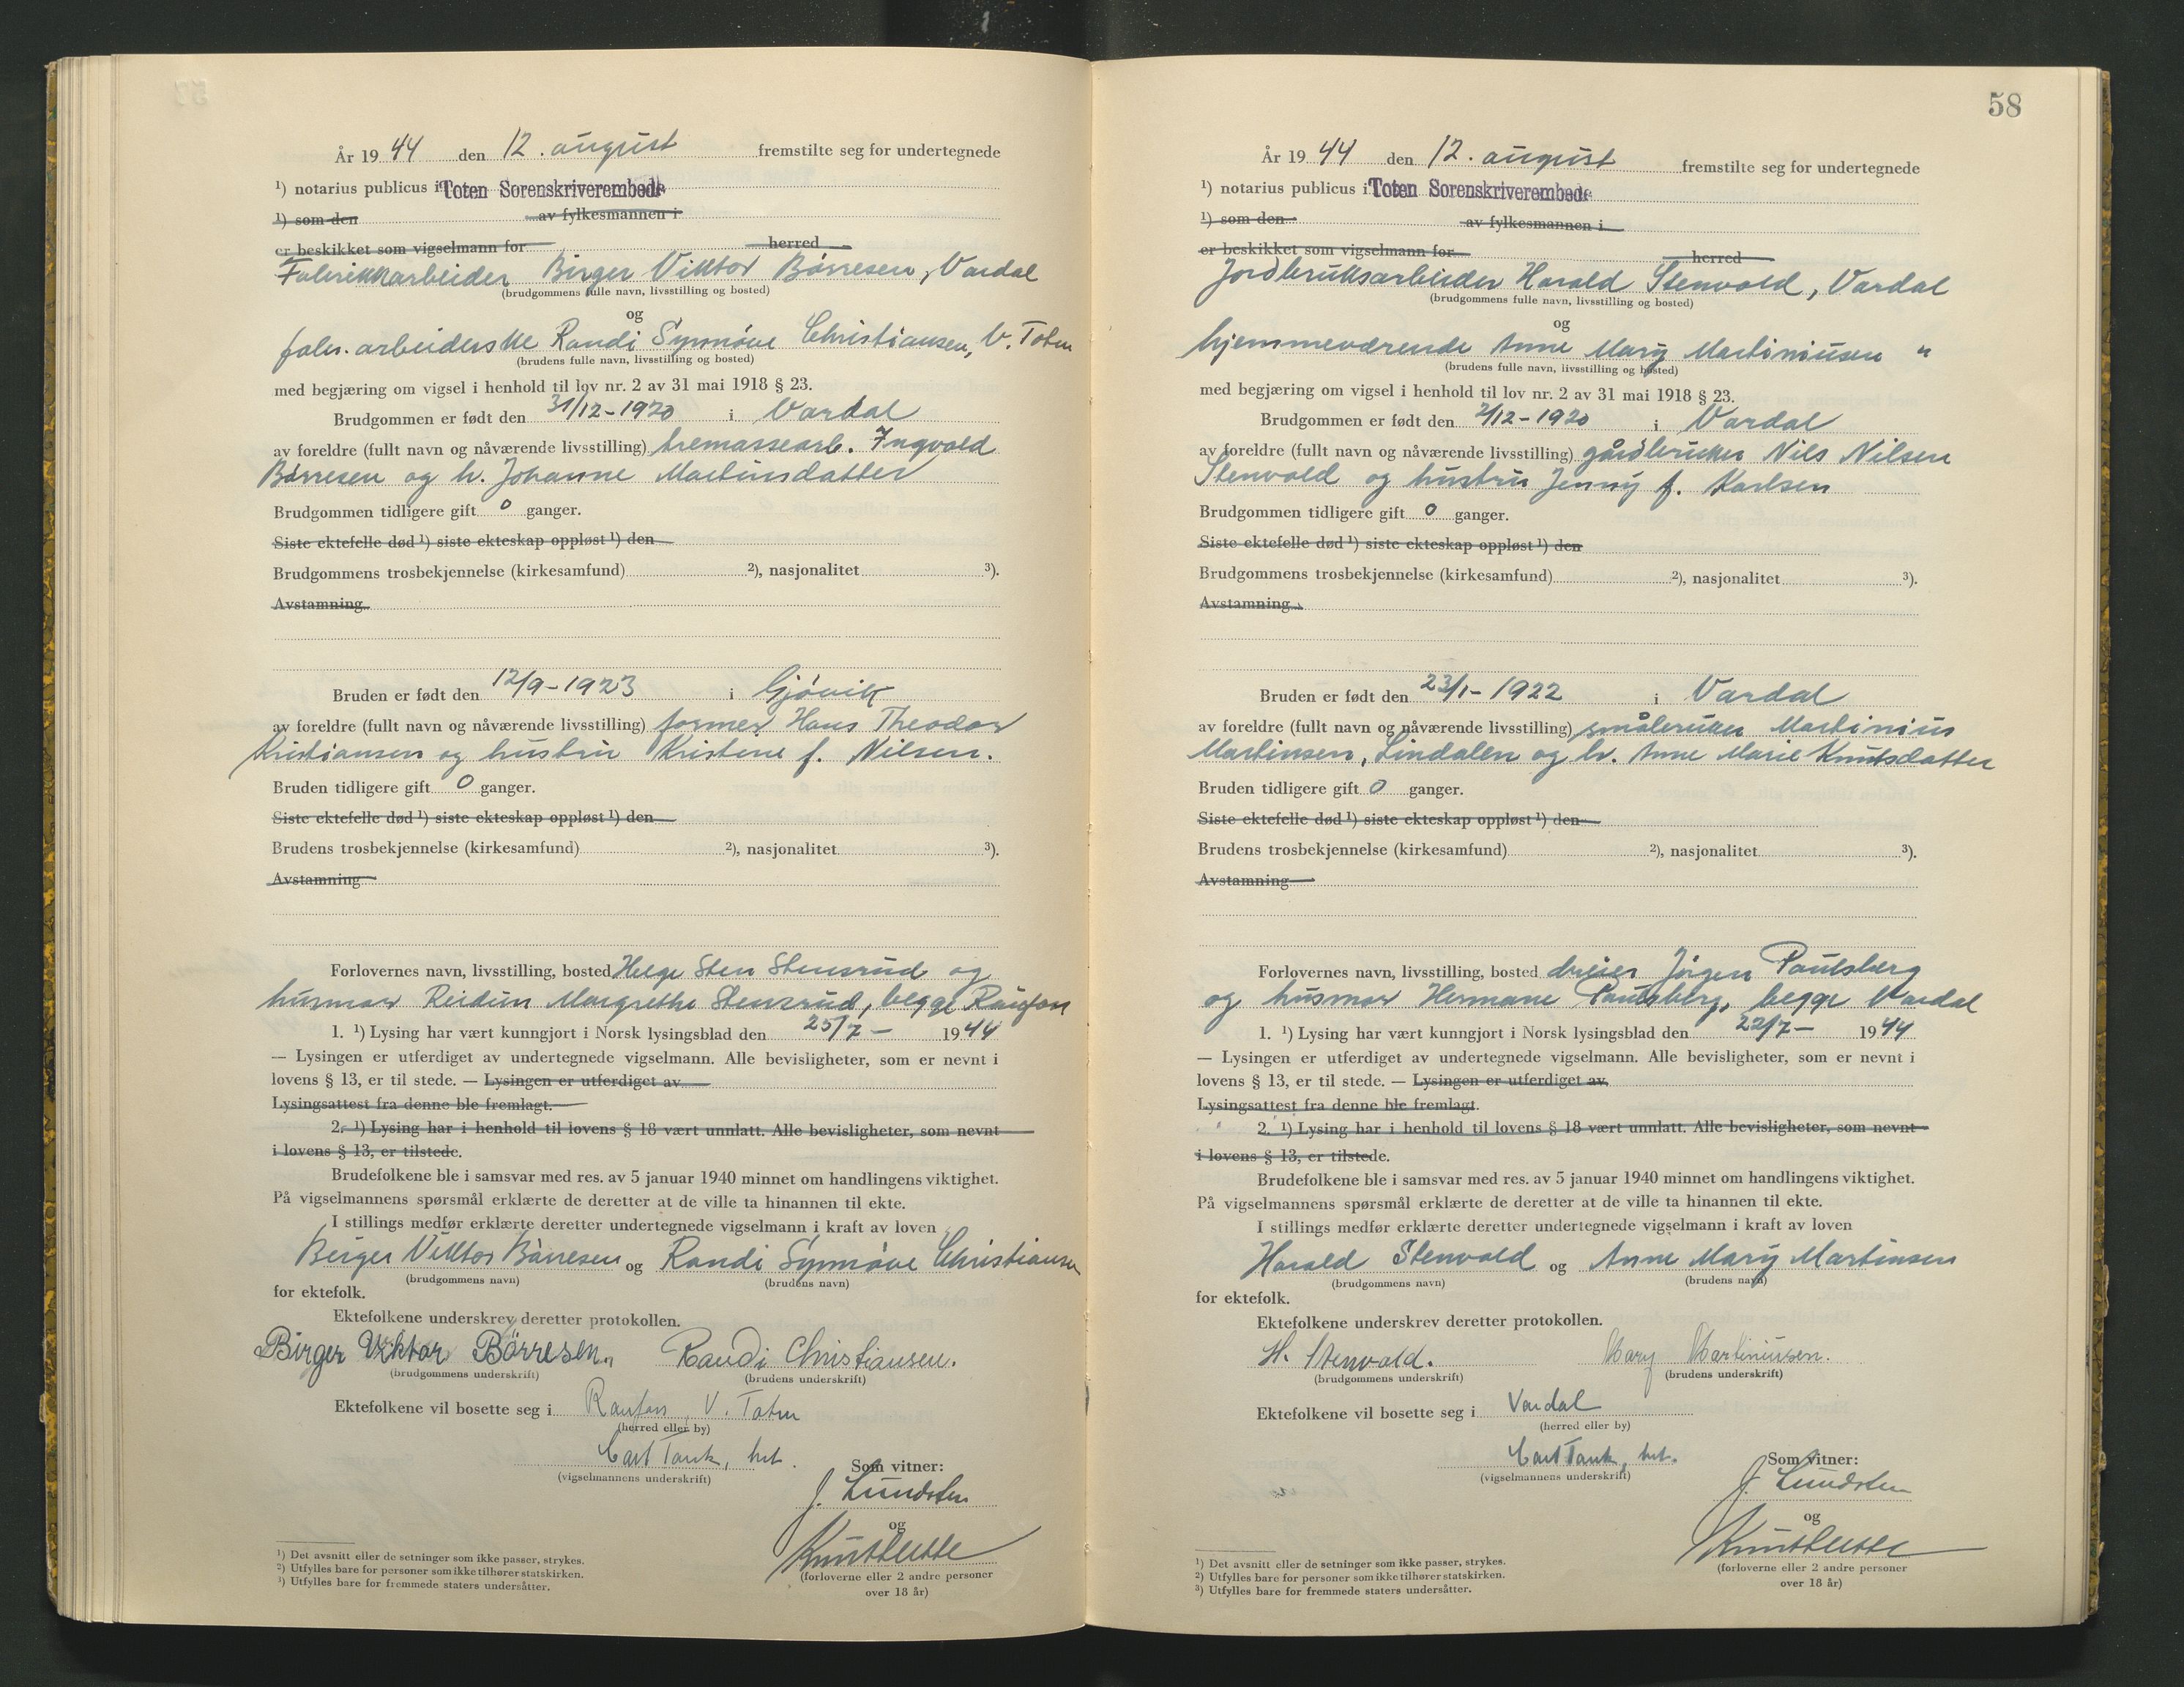 År 1944 den 12. august fremstilte seg for undertegnede
¹) notarius publicus i Toten Sorenskriverembede
¹) som den av fylkesmannen i
er beskikket som vigselmann for herred
Fabrikkarbeider Birger Viktor Börresen, Vardal
(brudgommens fulle navn, livsstilling og bosted)
og
fabr. arbeiderske Randi Synnöve Christiansen, V. Toten
(brudens fulle navn, livsstilling og bosted)
med begjæring om vigsel i henhold til lov nr. 2 av 31 mai 1918 § 23.
Brudgommen er født den 31/12-1920 i Vardal
av foreldre (fullt navn og nåværende livsstilling) tremassearb. Ingvald
Börresen og h. Johanne Martinsdatter
Brudgommen tidligere gift 0 ganger.
Siste ektefelle død ¹) siste ekteskap oppløst ¹) den
Brudgommens trosbekjennelse (kirkesamfund) ²), nasjonalitet ³).
Avstamning
Bruden er født den 12/9-1923 i Gjövik
av foreldre (fullt navn og nåværende livsstilling) former Hans Theodor
Kristiansen og hustru Kristine f. Nilsen.
Bruden tidligere gift 0 ganger.
Siste ektefelle død ¹) siste ekteskap oppløst ¹) den
Brudens trosbekjennelse (kirkesamfund) ²), nasjonalitet ³).
Avstamning
Forlovernes navn, livsstilling, bosted Helge Sten Stensrud og
husmor Reidun Margrethe Stensrud, begge Raufoss
1. ¹) Lysing har vært kunngjort i Norsk lysingsblad den 25/7- 1944
— Lysingen er utferdiget av undertegnede vigselmann. Alle bevisligheter, som er nevnt i
lovens § 13, er til stede. — Lysingen er utferdiget av
Lysingsattest fra denne ble fremlagt.
2. ¹) Lysing har i henhold til lovens § 18 vært unnlatt. Alle bevisligheter, som nevnt
i lovens § 13, er tilstede.
Brudefolkene ble i samsvar med res. av 5 januar 1940 minnet om handlingens viktighet.
På vigselmannens spørsmål erklærte de deretter at de ville ta hinannen til ekte.
I stillings medfør erklærte deretter undertegnede vigselmann i kraft av loven
Birger Viktor Börresen og Randi Synnöve Christiansen
(brudgommens navn) (brudens navn)
for ektefolk.
Ektefolkene underskrev deretter protokollen.
Birger Viktor Börresen. Randi Christiansen.
(brudgommens underskrift) (brudens underskrift)
Ektefolkene vil bosette seg i Raufoss, V. Toten
(herred eller by)
Carl Tank,
(vigselmannens underskrift)
Som vitner:
J. Lundsten
og
(forloverne eller 2 andre personer
over 18 år)
¹) Det avsnitt eller de setninger som ikke passer, strykes.
²) Utfylles bare for personer som ikke tilhører statskirken.
³) Utfylles bare for fremmede staters undersåtter.
58
År 1944 den 12. august fremstilte seg for undertegnede
¹) notarius publicus i Toten Sorenskriverembede
¹) som den av fylkesmannen i
er beskikket som vigselmann for herred
Jordbruksarbeider Harald Stenvold, Vardal
(brudgommens fulle navn, livsstilling og bosted)
og
hjemmeværende Anne Mary Martiniusen "
(brudens fulle navn, livsstilling og bosted)
med begjæring om vigsel i henhold til lov nr. 2 av 31 mai 1918 § 23.
Brudgommen er født den 2/12-1920 i Vardal
av foreldre (fullt navn og nåværende livsstilling) gårdbruker Nils Nilsen
Stenvold og hustru Jenny f. Karlsen
Brudgommen tidligere gift 0 ganger.
Siste ektefelle død ¹) siste ekteskap oppløst ¹) den
Brudgommens trosbekjennelse (kirkesamfund) ²), nasjonalitet ³).
Avstamning
Bruden er født den 23/1-1922 i Vardal
av foreldre (fullt navn og nåværende livsstilling) småbruker Martinius
Martinsen, Lindalen og h. Anne Marie Knutsdatter
Bruden tidligere gift 0 ganger.
Siste ektefelle død ¹) siste ekteskap oppløst ¹) den
Brudens trosbekjennelse (kirkesamfund) ²), nasjonalitet ³).
Avstamning
Forlovernes navn, livsstilling, bosted dreier Jörgen Paulsberg
og husmor Hermane Paulsberg, begge Vardal
1. ¹) Lysing har vært kunngjort i Norsk lysingsblad den 22/7- 1944
— Lysingen er utferdiget av undertegnede vigselmann. Alle bevisligheter, som er nevnt i
lovens § 13, er til stede. — Lysingen er utferdiget av
Lysingsattest fra denne ble fremlagt.
2. ¹) Lysing har i henhold til lovens § 18 vært unnlatt. Alle bevisligheter, som nevnt
i lovens § 13, er tilstede.
Brudefolkene ble i samsvar med res. av 5 januar 1940 minnet om handlingens viktighet.
På vigselmannens spørsmål erklærte de deretter at de ville ta hinannen til ekte.
I stillings medfør erklærte deretter undertegnede vigselmann i kraft av loven
Harald Stenvold og Anne Mary Martinsen
(brudgommens navn) (brudens navn)
for ektefolk.
Ektefolkene underskrev deretter protokollen.
H. Stenvold. Mary Martiniusen.
(brudgommens underskrift) (brudens underskrift)
Ektefolkene vil bosette seg i Vardal
(herred eller by)
Carl Tank,
(vigselmannens underskrift)
Som vitner:
J. Lundsten
og
(forloverne eller 2 andre personer
over 18 år)
¹) Det avsnitt eller de setninger som ikke passer, strykes.
²) Utfylles bare for personer som ikke tilhører statskirken.
³) Utfylles bare for fremmede staters undersåtter.